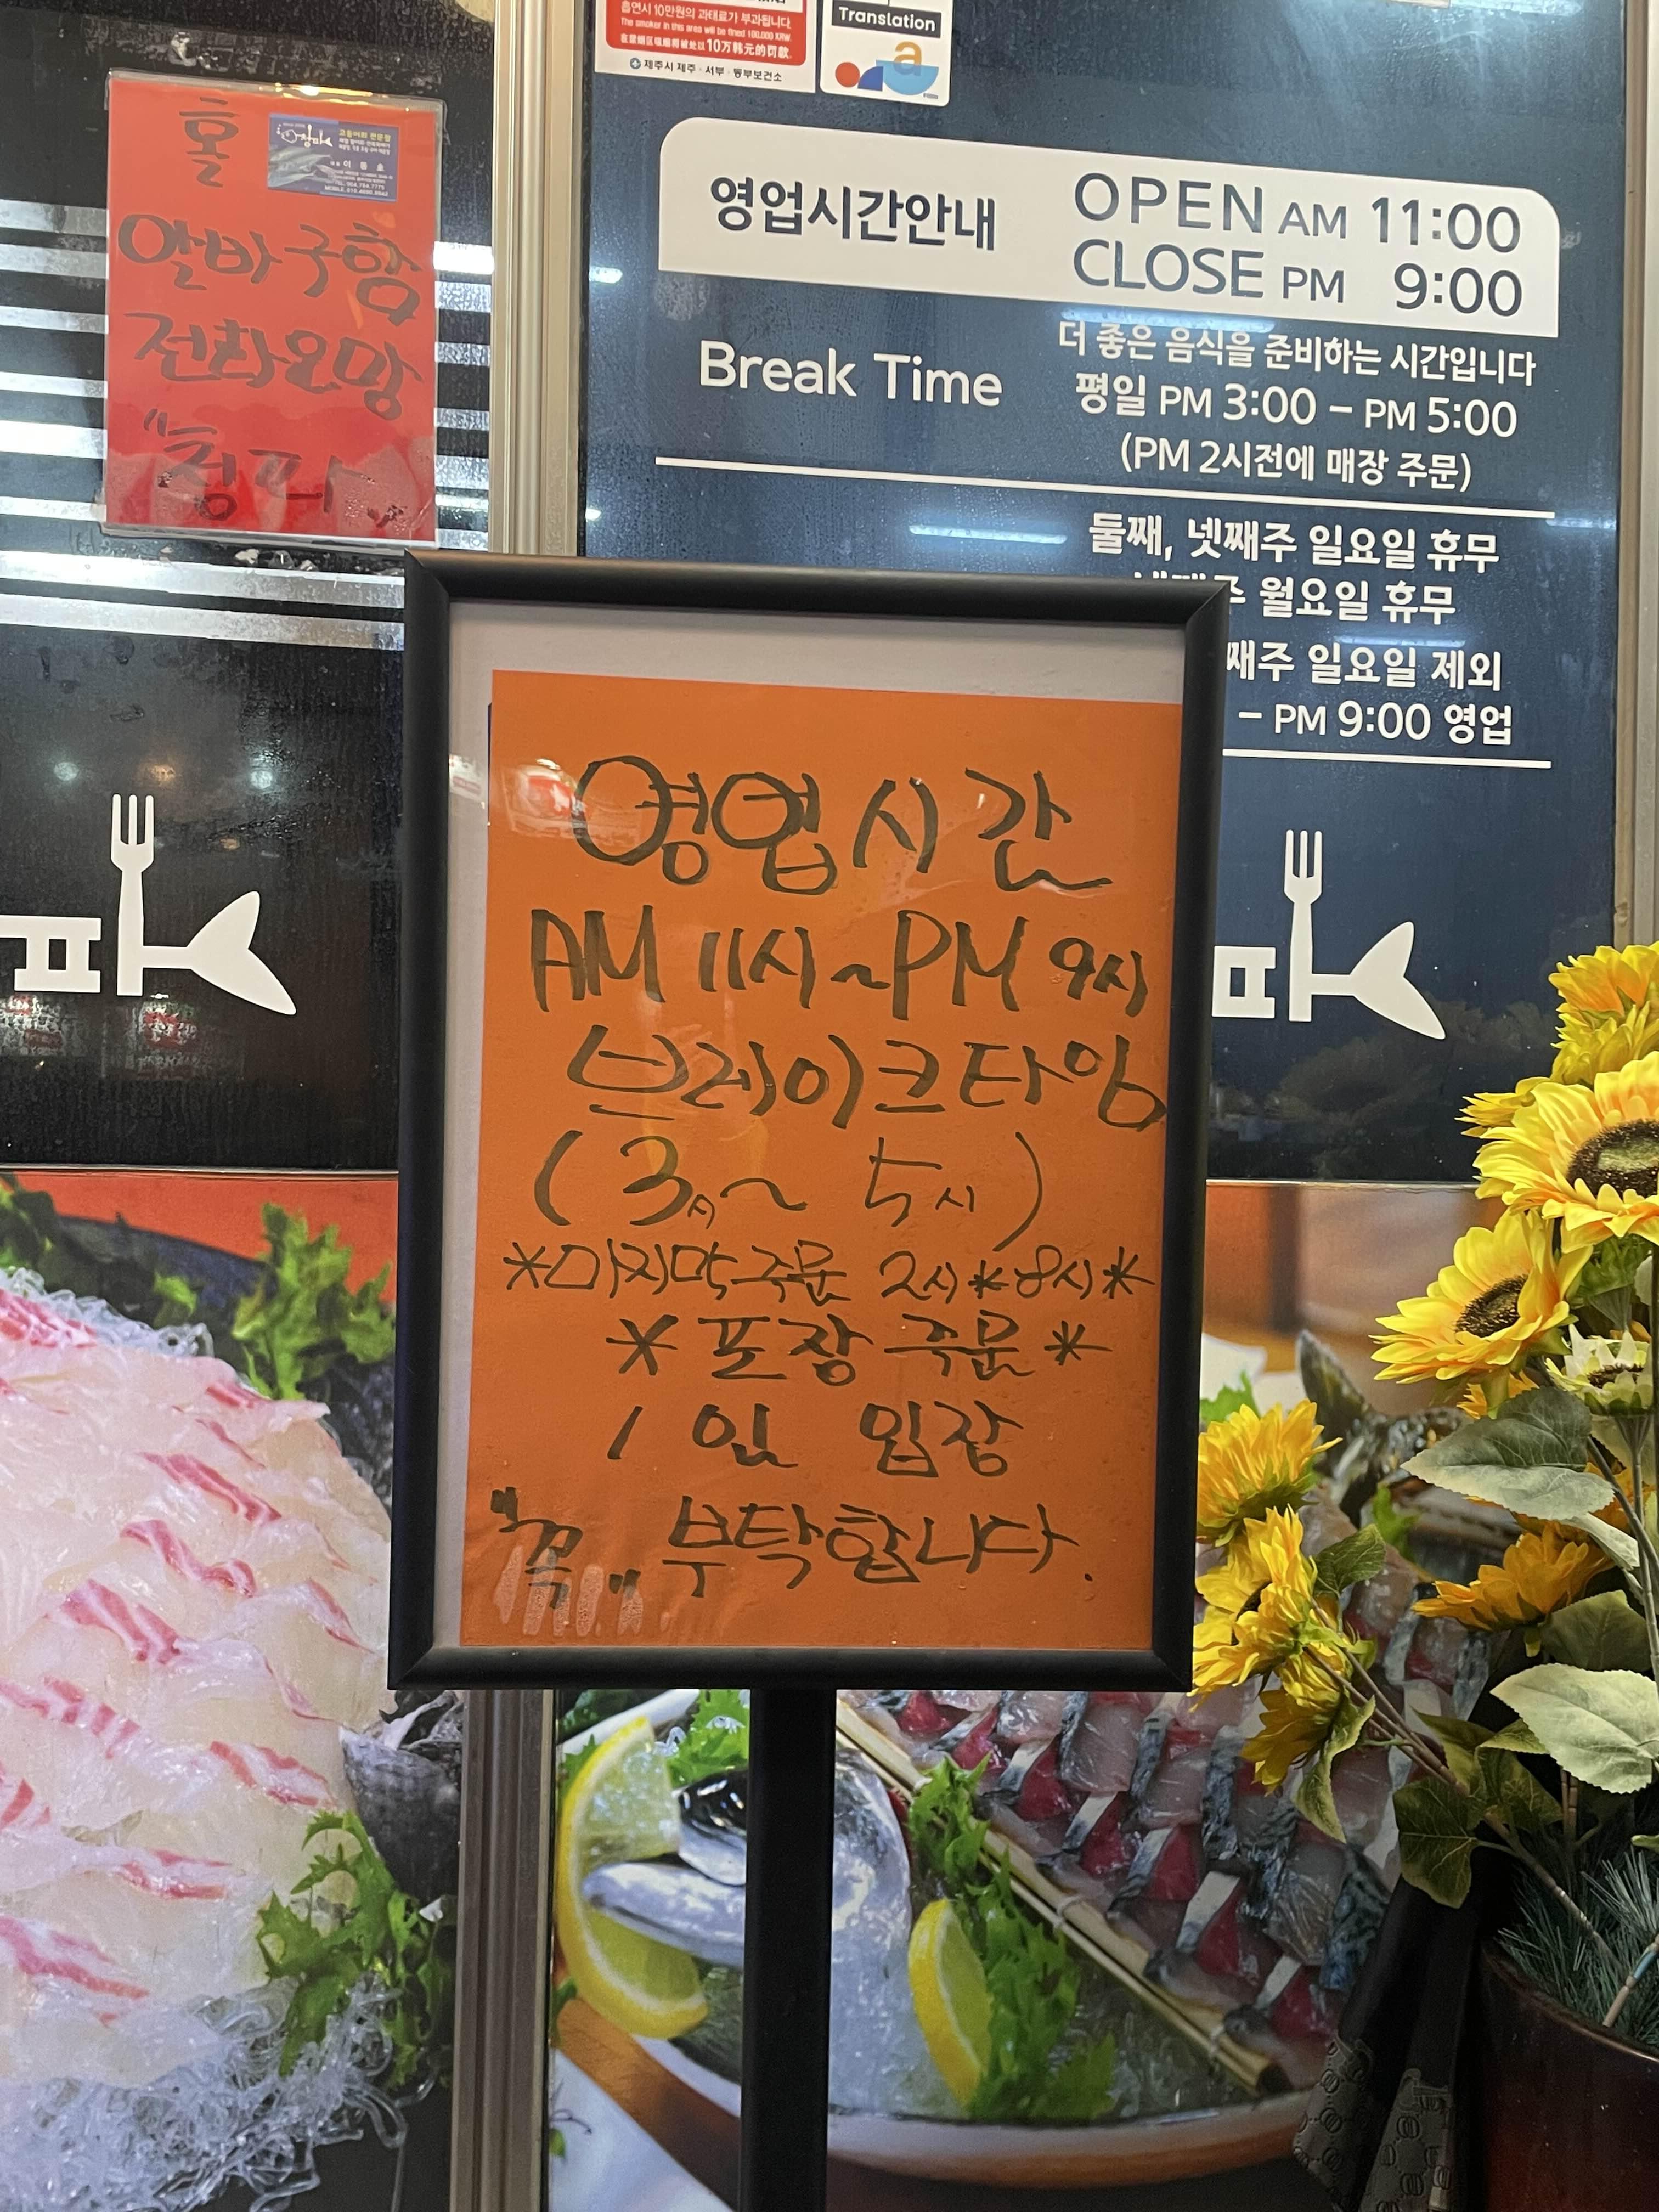 흡연시 10만원의 과태료가 부과됩니다.
The smoker in this area will be fined 100,000 KRW.
10万韩元的罚款
제주시 제주 · 서부 · 동부보건소
Translation
홀
알바구함
전화요망
"청파"
고등어회 전문점
이 동 호
영업시간안내
OPEN AM 11:00
CLOSE PM 9:00
Break Time
더 좋은 음식을 준비하는 시간입니다
평일 PM 3:00 – PM 5:00
(PM 2시전에 매장 주문)
둘째, 넷째주 일요일 휴무
월요일 휴무
째주 일요일 제외
– PM 9:00 영업
영업시간
AM 11시~PM 9시
브레이크타임
(3시~ 5시)
*마지막주문 2시*8시*
*포장주문*
1인 입장
"꼭" 부탁합니다.